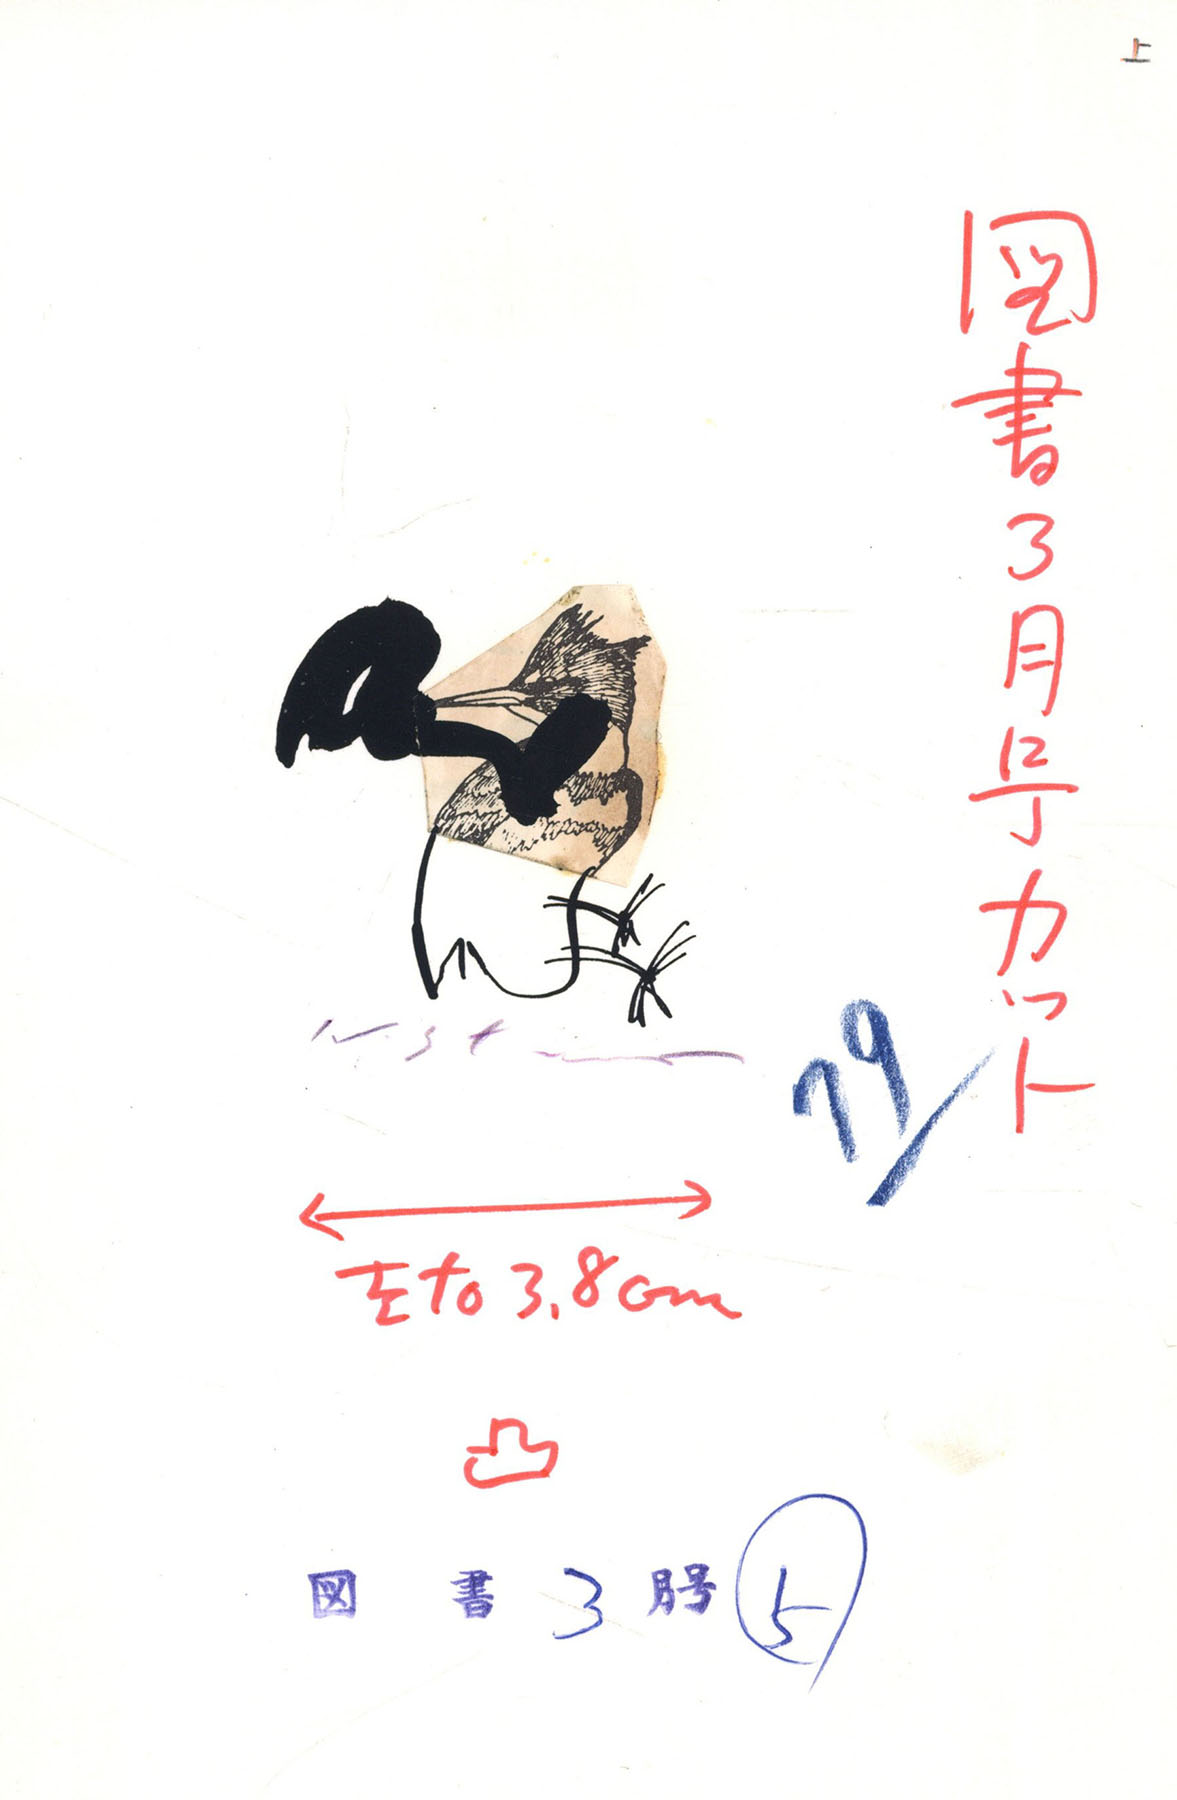 上
図書3月号カット
79
左右3.8cm
凸
図書3月号 5